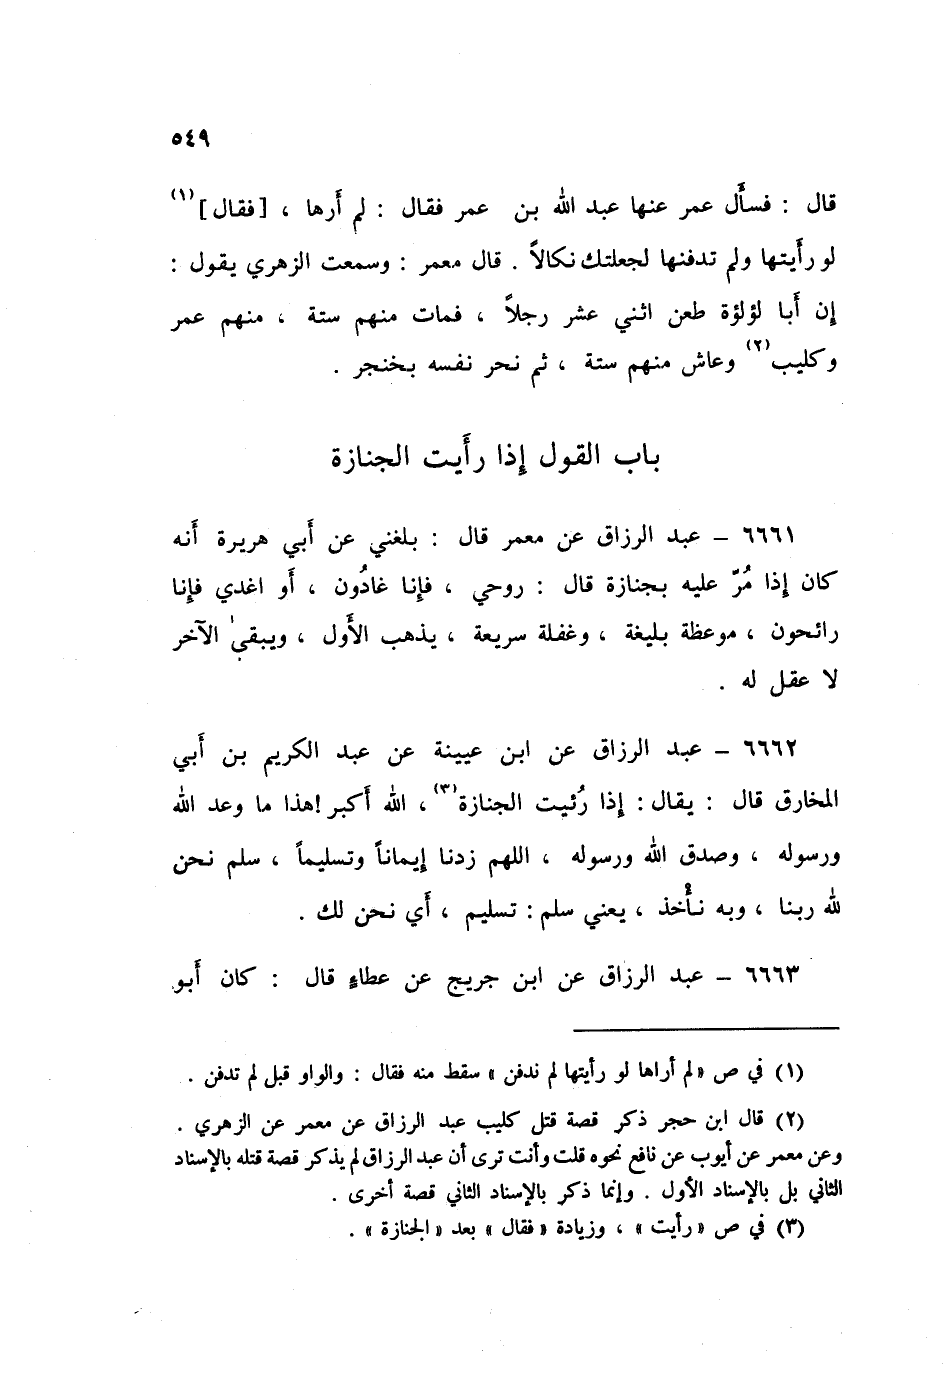 ٥٤٩
قال : فسأَل عمر عنها عبد الله بن عمر فقال : لم أَرها ، [فقال](١)
لو رأَيتها ولم تدفنها لجعلتك نكالاً . قال معمر : وسمعت الزهري يقول :
إِن أَبا لؤلؤة طعن اثني عشر رجلاً ، فمات منهم ستة ، منهم عمر
وكليب(٢) وعاش منهم ستة ، ثم نحر نفسه بخنجر .
باب القول إِذا رأَيت الجنازة
٦٦٦١ – عبد الرزاق عن معمر قال : بلغني عن أَبي هريرة أَنه
كان إِذا مُرّ عليه بجنازة قال : روحي ، فإِنا غادُون ، أَو اغدي فإِنا
رائحون ، موعظة بليغة ، وغفلة سريعة ، يذهب الأَول ، ويبقىٰ الآخر
لا عقل له .
٦٦٦٢ – عبد الرزاق عن ابن عيينة عن عبد الكريم بن أَبي
المخارق قال : يقال : إِذا رُئيت الجنازة(٣) ، الله أَكبر ! هذا ما وعد الله
ورسوله ، وصدق الله ورسوله ، اللهم زدنا إِيماناً وتسليماً ، سلم نحن
لله ربنا ، وبه نأْخذ ، يعني سلم : تسليم ، أَي نحن لك .
٦٦٦٣ – عبد الرزاق عن ابن جريج عن عطاءٍ قال : كان أَبو
(١) في ص «لم أراها لو رأيتها لم ندفن» سقط منه فقال : والواو قبل لم تدفن .
(٢) قال ابن حجر ذكر قصة قتل كليب عبد الرزاق عن معمر عن الزهري .
وعن معمر عن أيوب عن نافع نحوه قلت وأنت ترى أن عبد الرزاق لم يذكر قصة قتله بالإسناد
الثاني بل بالإسناد الأول . وإنما ذكر بالإسناد الثاني قصة أخرى .
(٣) في ص «رأيت» ، وزيادة «فقال» بعد «الجنازة» .